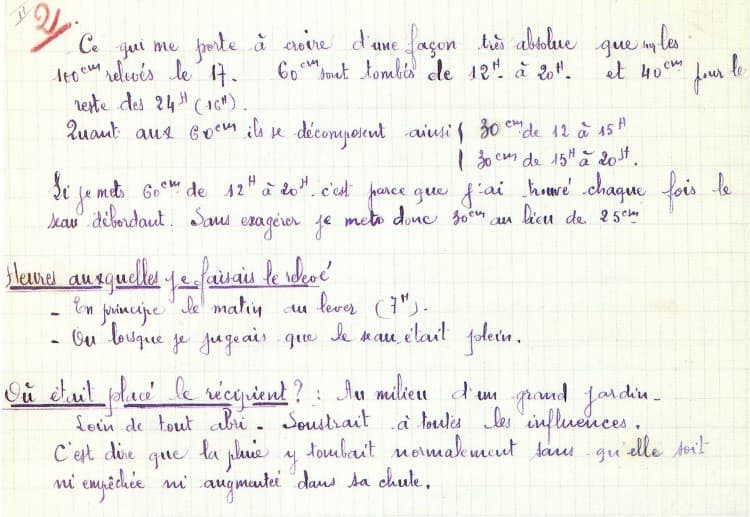 II 2/
Ce qui me porte à croire d'une façon très absolue que sur les
100cm relevés le 17. 60cm sont tombés de 12H à 20H. et 40cm pour le
reste des 24H (16H).
Quant aux 60cm ils se décomposent ainsi { 30cm de 12 à 15H
{ 30cm de 15H à 20H.
Si je mets 60cm de 12H à 20H c'est parce que j'ai trouvé chaque fois le
seau débordant. Sans exagérer je mets donc 30cm au lieu de 25cm
Heures auxquelles je faisais le relevé
- En principe le matin au lever (7H).
- Ou lorsque je jugeais que le seau était plein.
Où était placé le récipient ? : Au milieu d'un grand jardin -
Loin de tout abri - Soustrait à toutes les influences.
C'est dire que la pluie y tombait normalement sans qu'elle soit
ni empêchée ni augmentée dans sa chute.